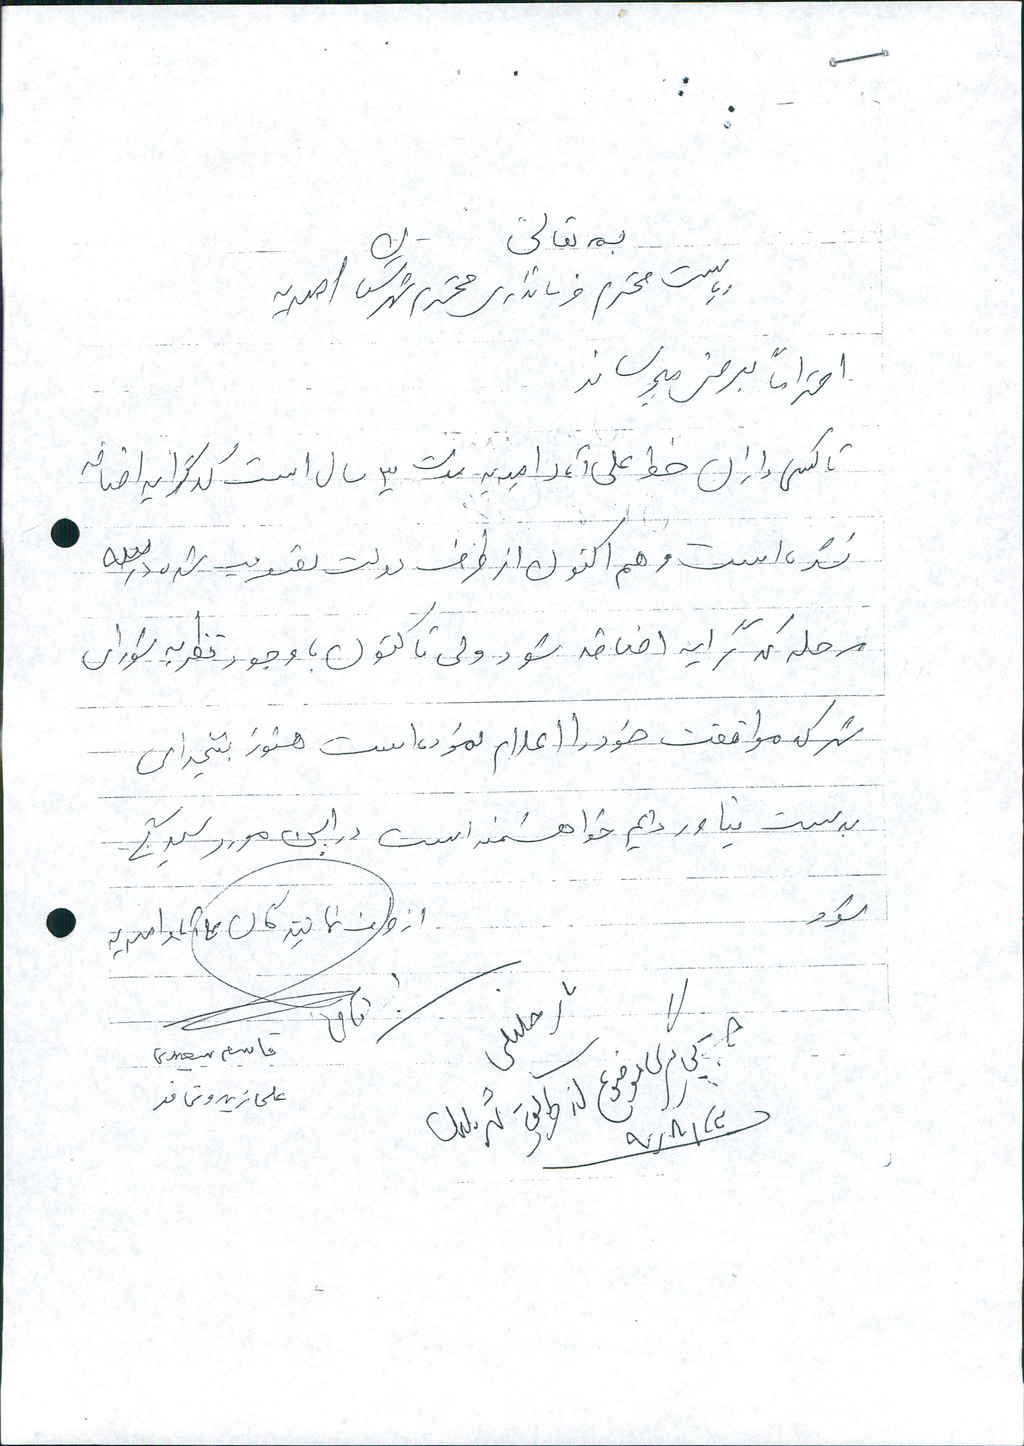 به تعالی
ریاست محترم فرمانداری محترم شهرستان امیدیه
احتراماً بعرض میرساند
تاکسی داران خط علی آباد امیدیه مدت ۳ سال است که کرایه اضافه
نشده است و هم اکنون از طرف دولت تصویب شده در
مرحله که کرایه اضافه شود ولی تا کنون با وجود نظریه شورای
شهر که موافقت خود را اعلام نموده است هنوز نتیجه ای
بدست نیاوردیم خواهشمند است در این مورد رسیدگی
شود
از طرف نمایندگان امیدیه
قاسم سعیدی
پیگیری موضوع از طریق